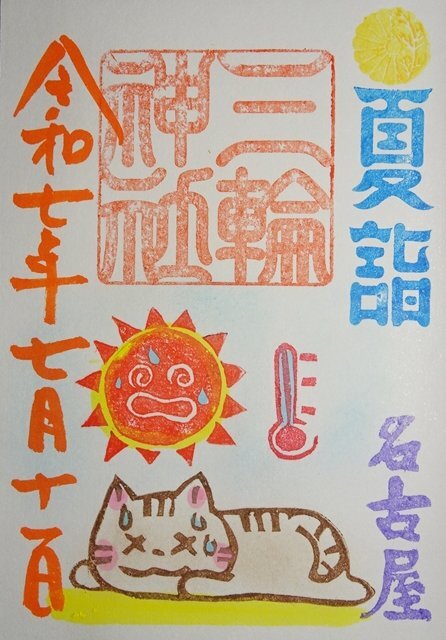 夏詣
名古屋
三輪
神社
令和七年七月十一日